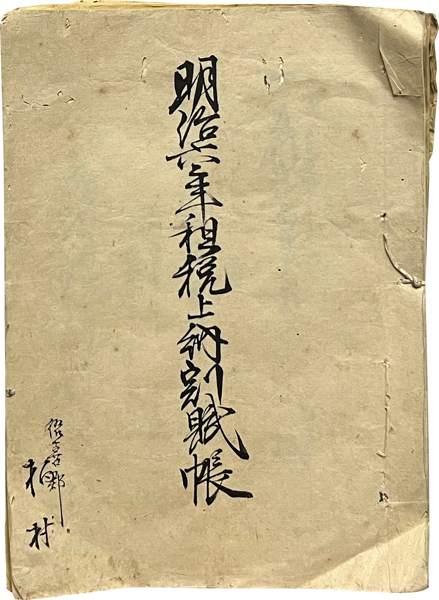 明治六年租税上納割賦帳
佐喜郷
柏村